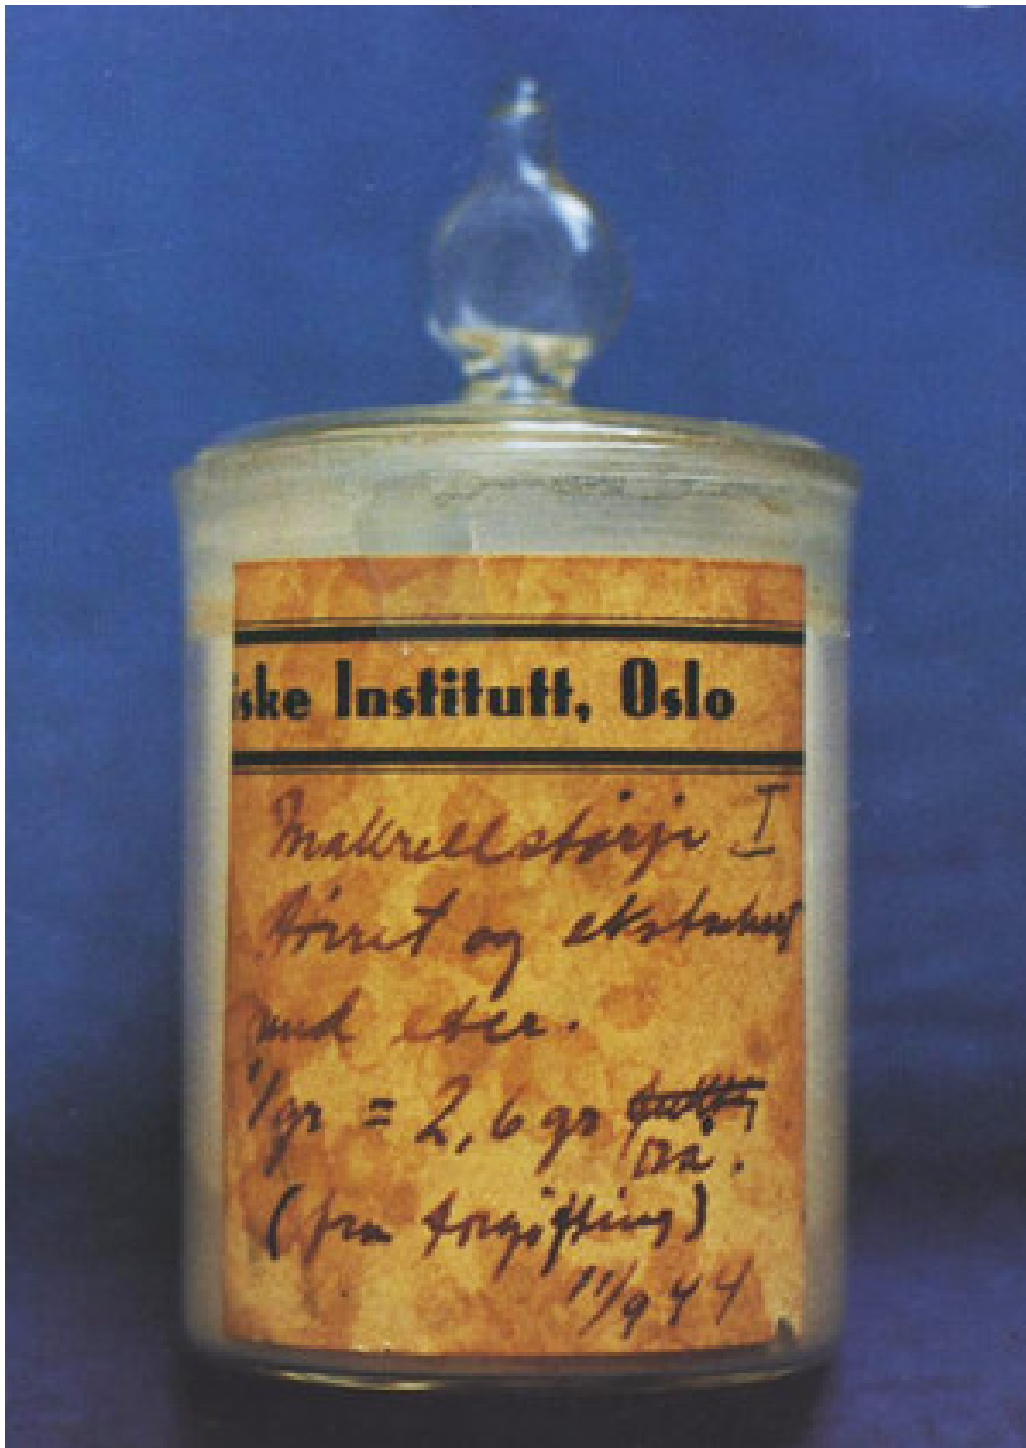 iske Institutt, Oslo
Makrellstørje I
tørret og ekstrahert
med eter.
1/gr = 2,6 gr
rå.
(fra forgifting)
11/9 44